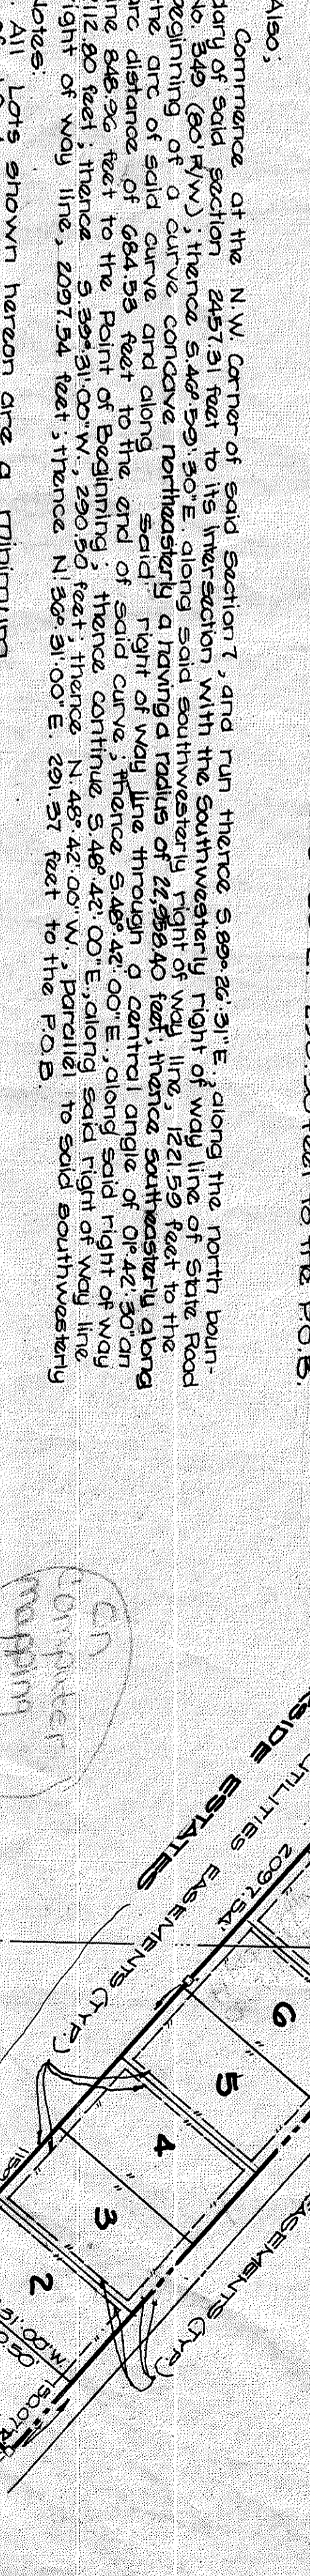 E. 290.50 feet to the P.O.B.
Also;
Commence at the N.W. Corner of said Section 7, and run thence S.89°26'31"E., along the north boun-
dary of said section 2457.31 feet to its intersection with the Southwesterly right of way line of State Road
No. 349 (80' R/W); thence S.46°59'30"E. along said southwesterly right of way line, 1221.59 feet to the
beginning of a curve concave northeasterly a having a radius of feet; thence southeasterly along
the arc of said curve and along said right of way line through a central angle of 01°42'30" an
arc distance of 684.53 feet to the end of said curve; thence S.48°42'00"E., along said right of way
line 848.96 feet to the Point of Beginning; thence continue S.48°42'00"E., along said right of way line
112.80 feet; thence S.39°31'00"W., 290.50 feet; thence N.48°42'00"W., parallel to said southwesterly
right of way line, 2097.54 feet; thence N.36°31'00"E. 291.37 feet to the P.O.B.
Notes:
All Lots shown hereon are a minimum
Computer
mapping
SIDE ESTATES
UTILITIES EASEMENTS (TYP.)
2097.54'
EASEMENTS (TYP.)
6
5
4
3
2
31'.00"W
0.50'
150.07'